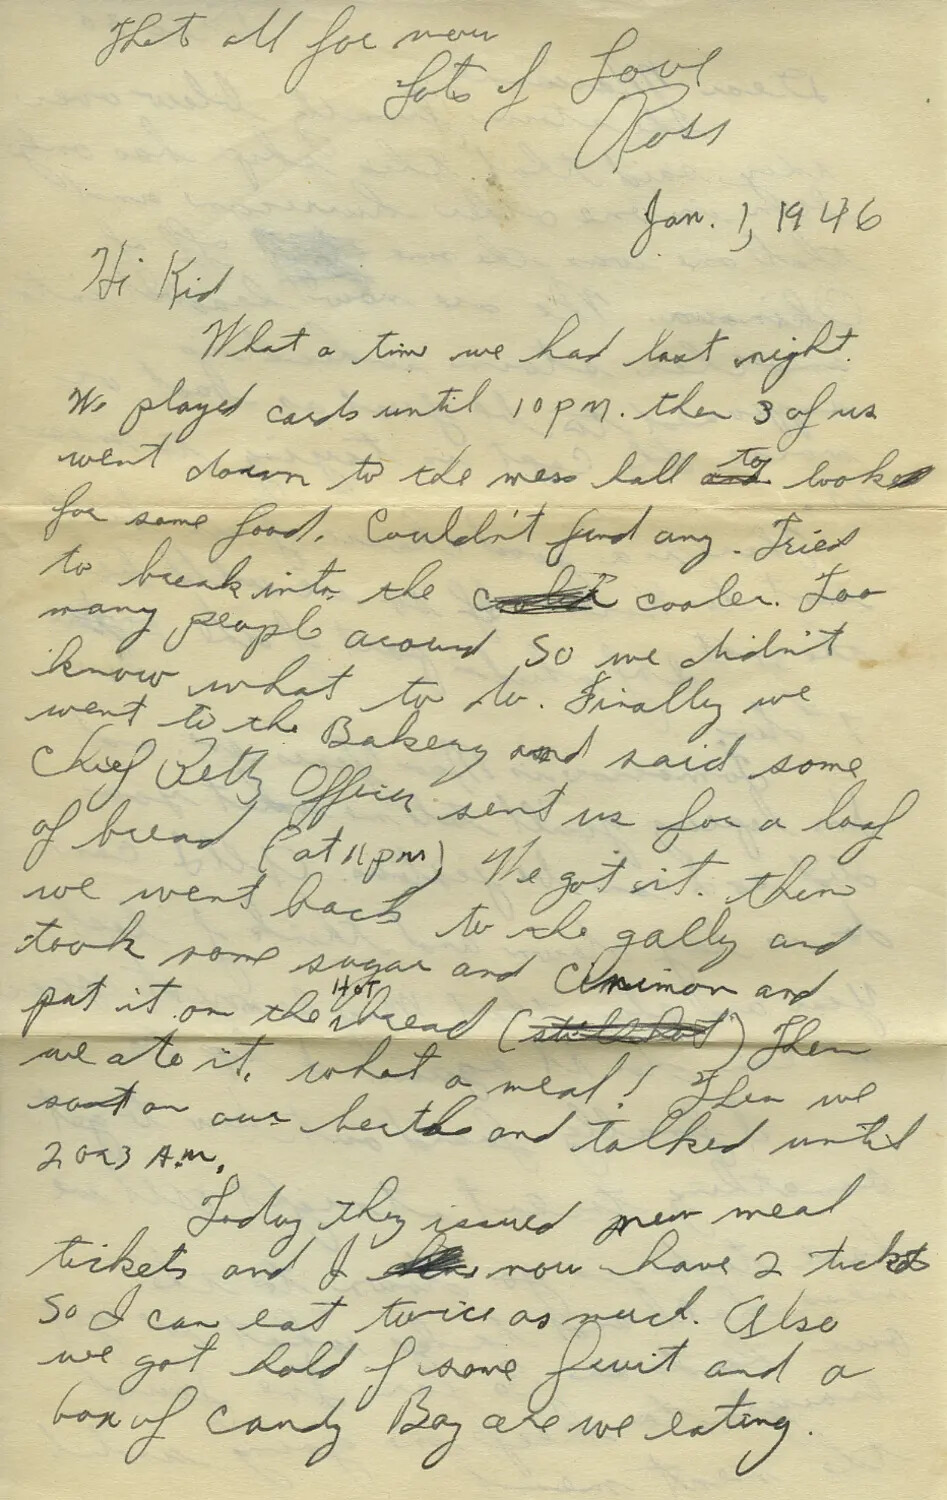 That all for now
Lots of Love
Ross
Jan. 1, 1946
Hi Kid
What a time we had last night.
We played cards until 10 PM. then 3 of us
went down to the mess hall to look
for some food. Couldn't find any. Tried
to break into the cooler. Too
many people around so we didn't
know what to do. Finally we
went to the Bakery and said some
Chief Petty Officer sent us for a loaf
of bread (at 11 pm) We got it. then
we went back to the gally and
took some sugar and Cinnimon and
put it on the Hot bread (still hot) Then
we ate it. what a meal! Then we
sat on our berths and talked until
2 or 3 A.M.
Today they issued new meal
tickets and I now have 2 tickets
so I can eat twice as much. Also
we got hold of some fruit and a
box of candy Boy are we eating.